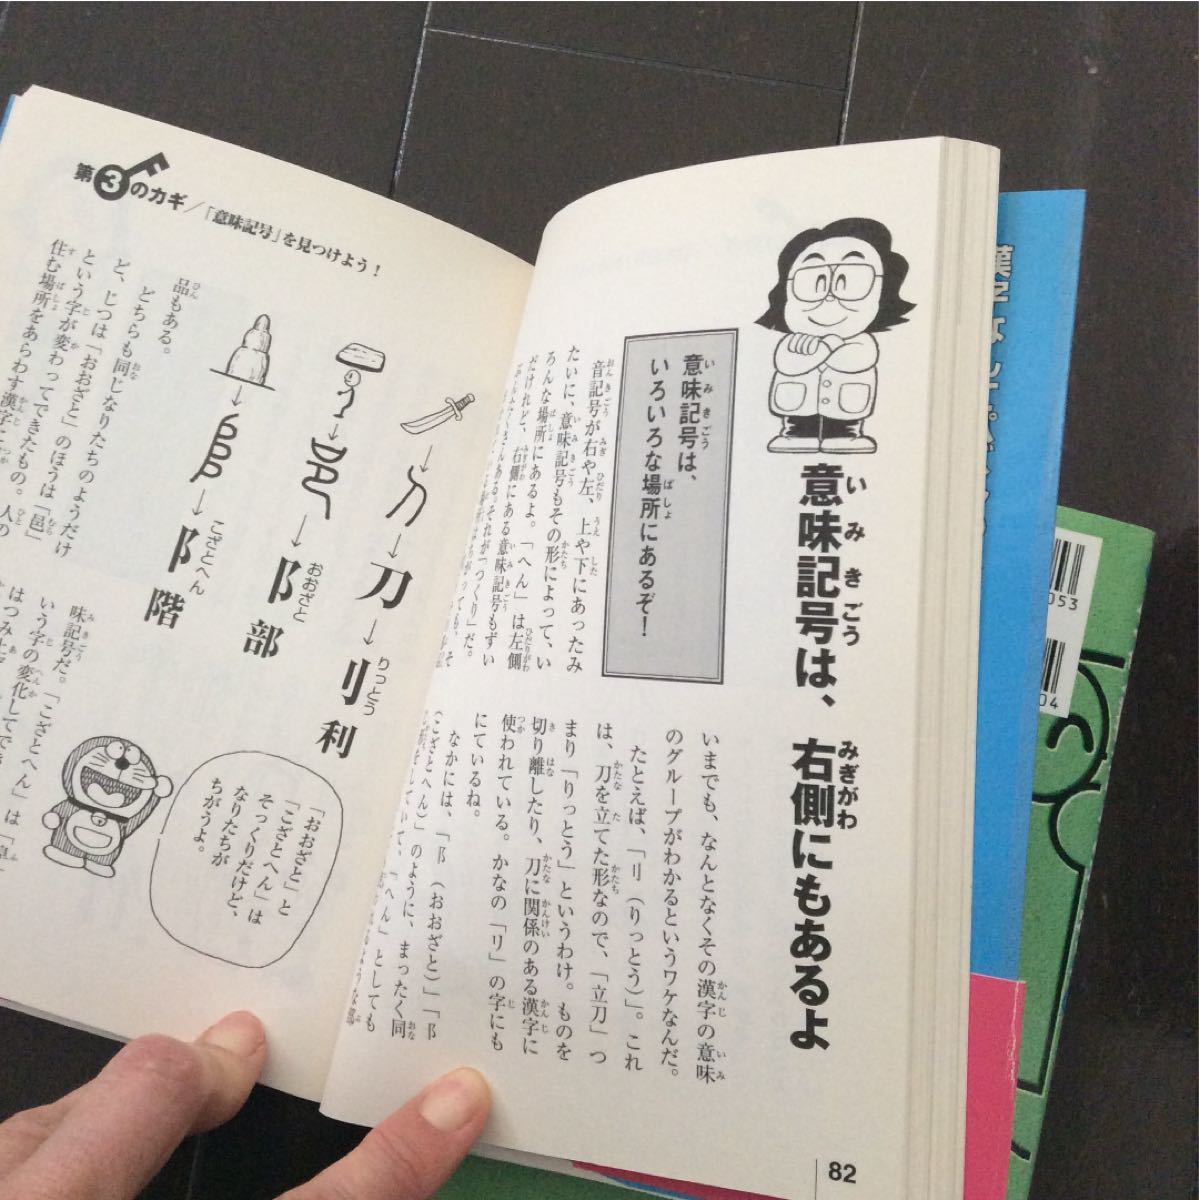 意味記号は、右側にもあるよ
いみきごう
みぎがわ
意味記号は、
いろいろな場所にあるぞ！
音記号が右や左、上や下にあったみ
たいに、意味記号もその形によって、い
ろんな場所にあるよ。「へん」は左側
だけれど、右側にある意味記号もずい
いまでも、なんとなくその漢字の意味
のグループがわかるというワケなんだ。
たとえば、「刂（りっとう）」。これ
は、刀を立てた形なので、「立刀」つ
まり「りっとう」というわけ。ものを
切り離したり、刀に関係のある漢字に
使われている。かなの「リ」の字にも
にているね。
なかには、「阝（おおざと）」「阝
（こざとへん）」のように、まったく同
82
第3のカギ／「意味記号」を見つけよう！
刀→刂 利
りっとう
阝部
おおざと
阝階
こざとへん
品もある。
どちらも同じなりたちのようだけ
ど、じつは「おおざと」のほうは「邑」
という字が変わってできたもの。人の
住む場所をあらわす漢字
味記号だ。「こざとへん」は「阜」
いう字の変化して
「おおざと」と
「こざとへん」は
そっくりだけど、
なりたちが
ちがうよ。
053
04